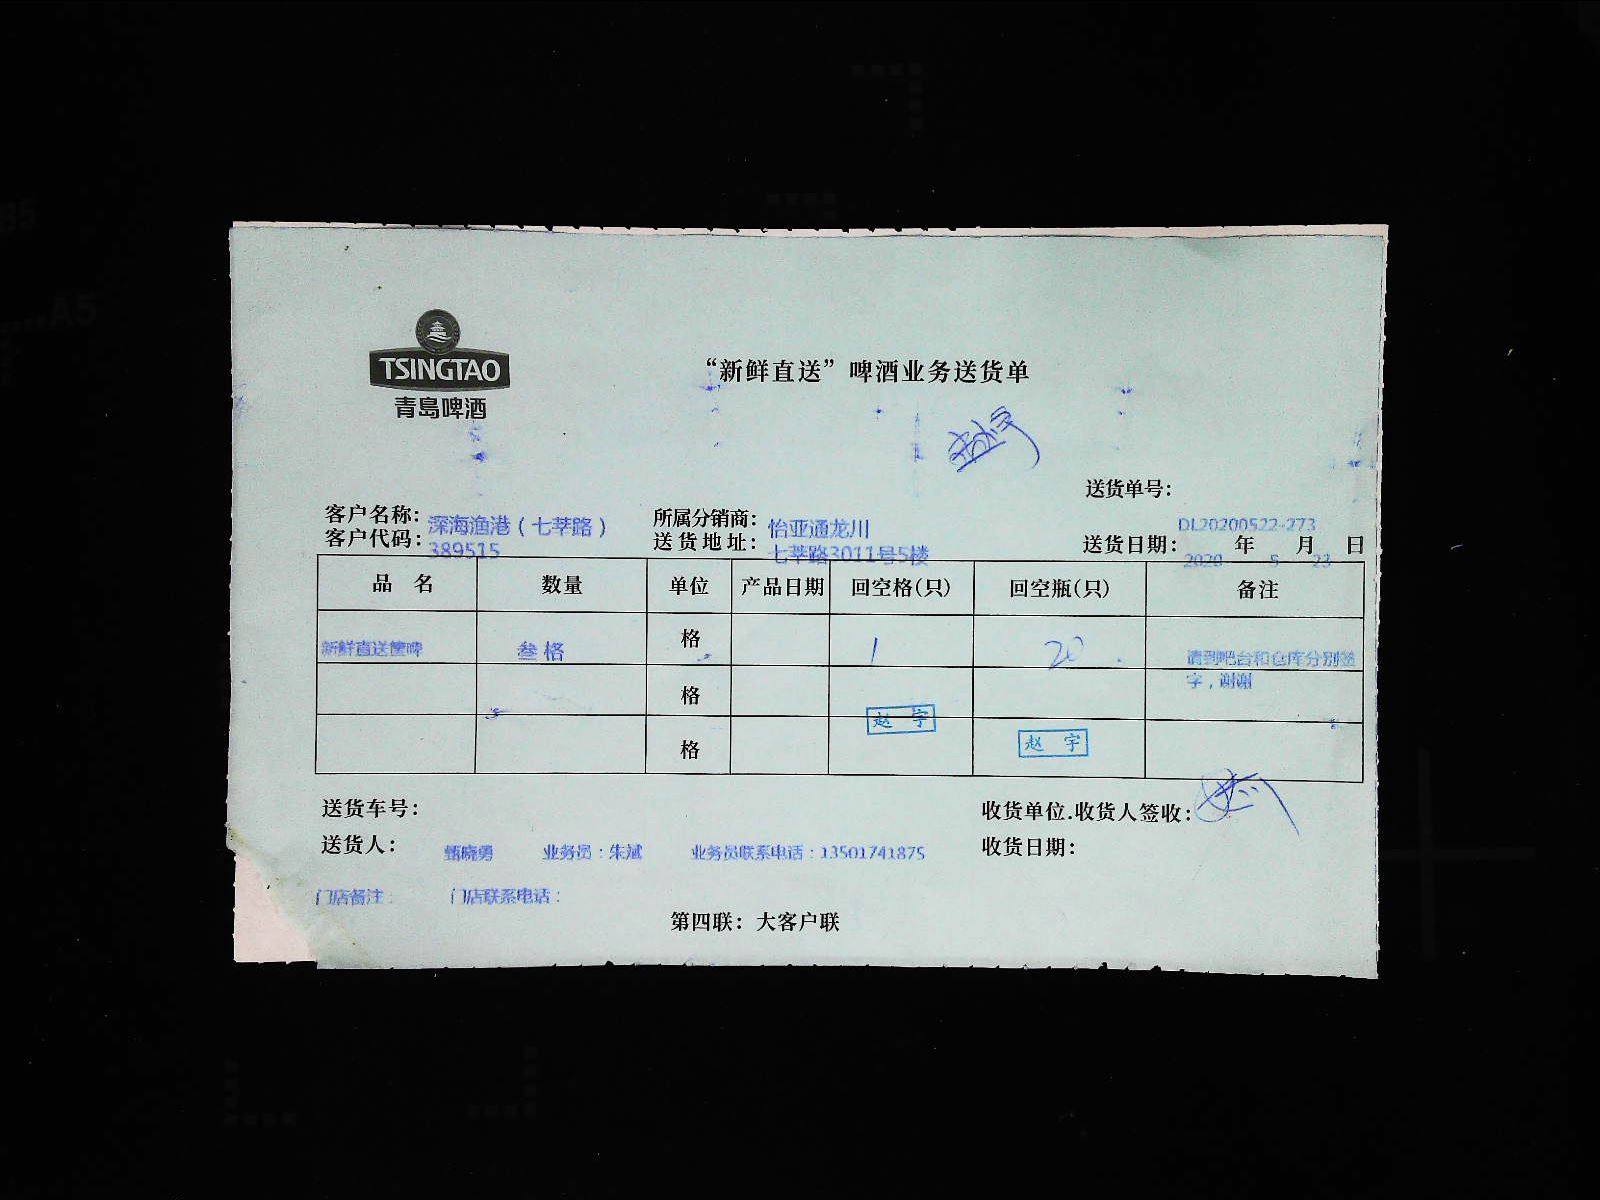 TSINGTAO
青岛啤酒
“新鲜直送”啤酒业务送货单
送货单号:
DL20200522-273
客户名称: 深海渔港（七莘路） 所属分销商: 怡亚通龙川
客户代码: 389515 送货地址: 七莘路3011号5楼 送货日期: 2020 年 5 月 23 日
品名 数量 单位 产品日期 回空格(只) 回空瓶(只) 备注
新鲜直送箧啤 叁格 格 1 20 请到吧台和仓库分别签字，谢谢
格
赵宇
格
赵宇
送货车号: 收货单位.收货人签收:
送货人: 甄晓勇 业务员：朱斌 业务员联系电话：13501741875 收货日期:
门店备注： 门店联系电话：
第四联：大客户联